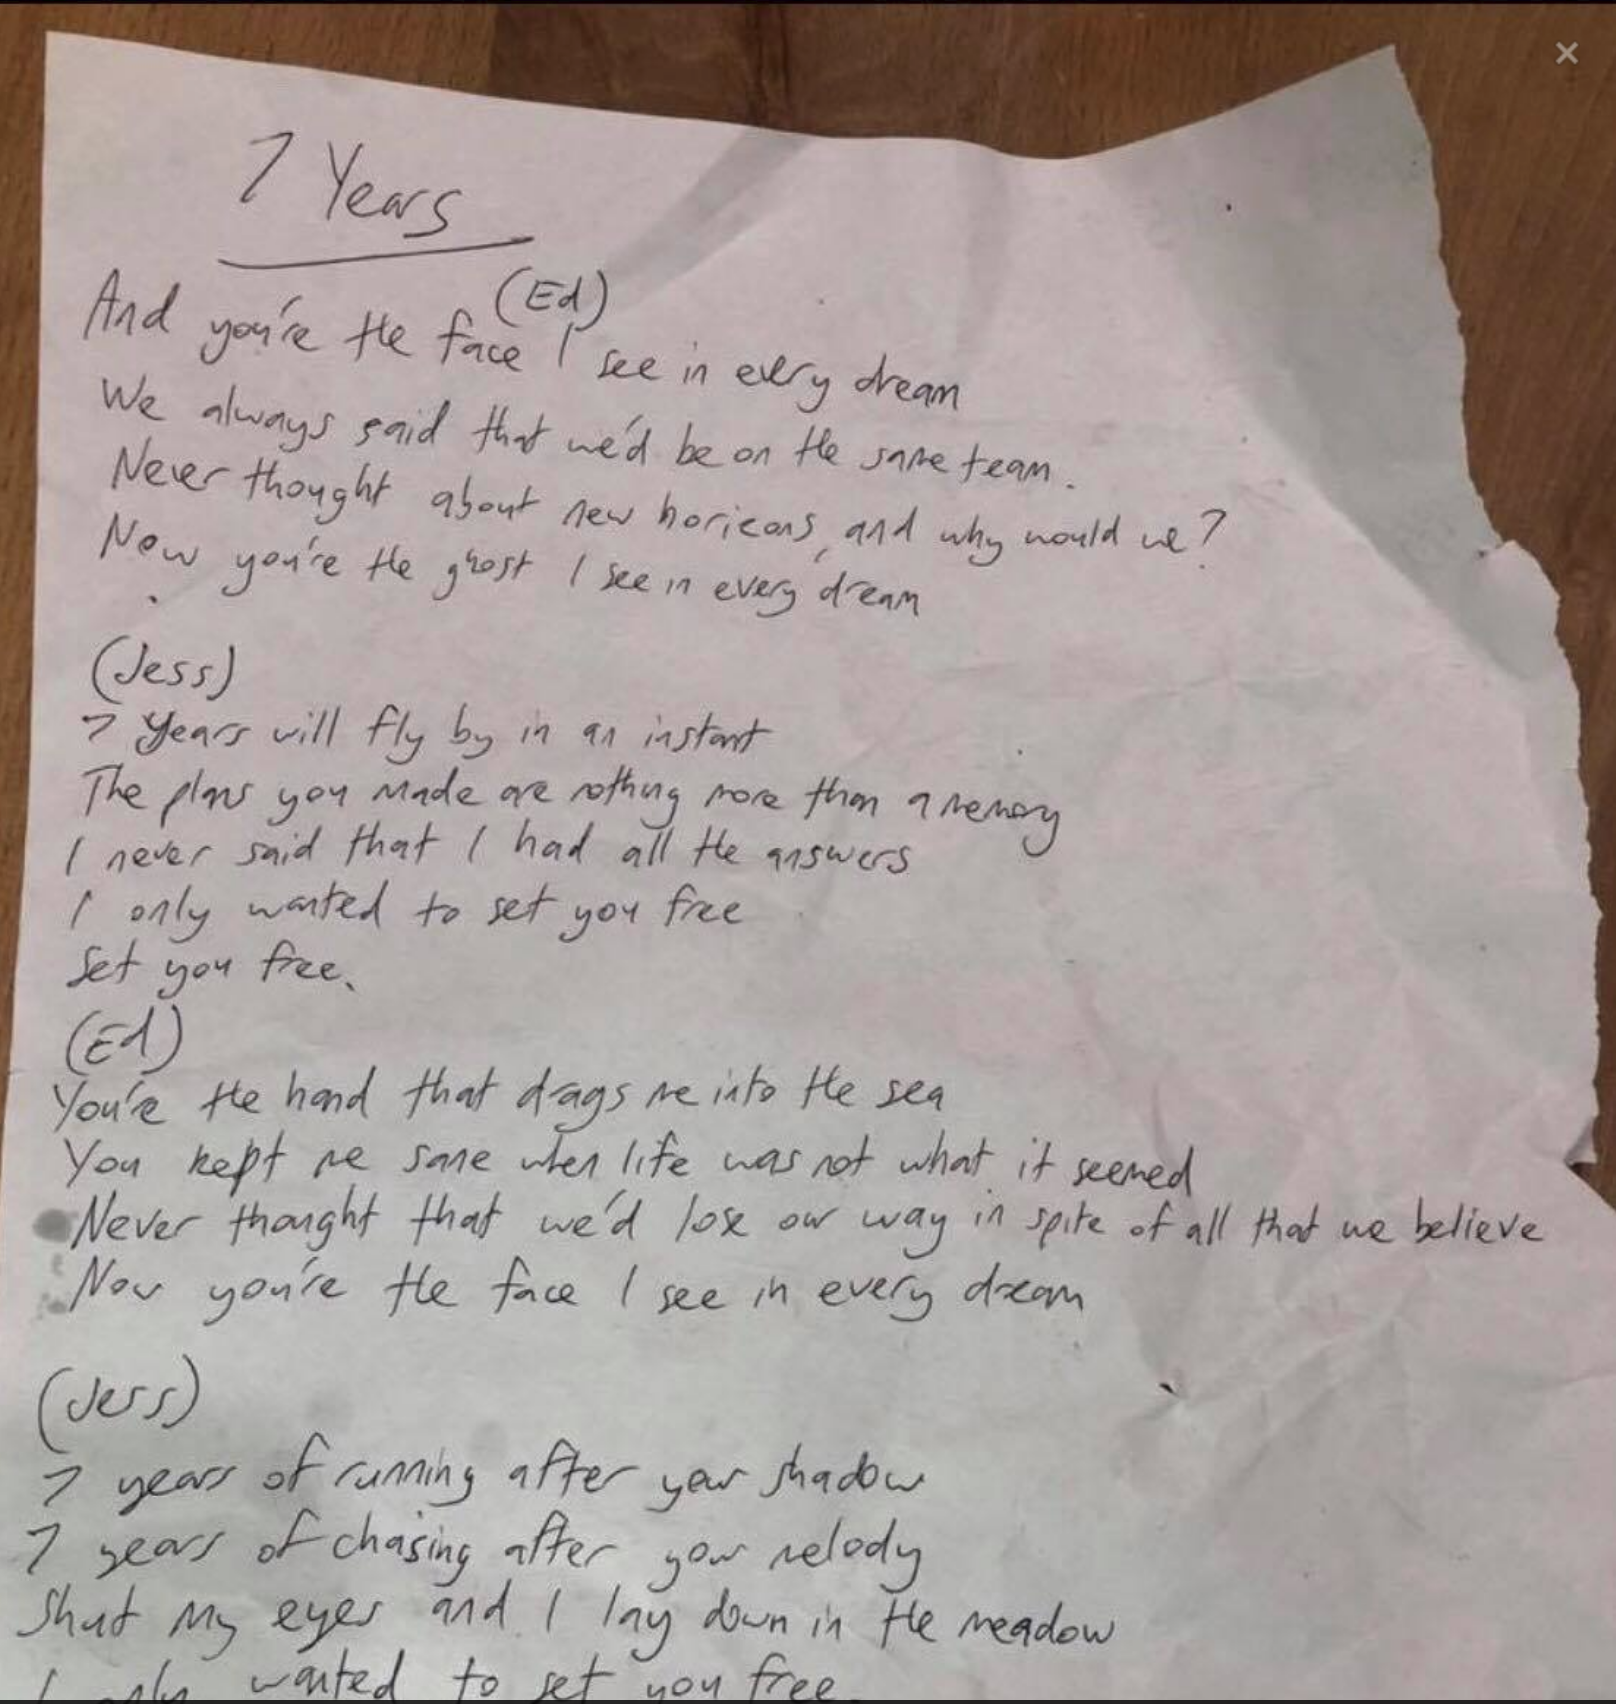 7 Years
(Ed)
And you're the face I see in every dream
We always said that we'd be on the same team.
Never thought about new horizons, and why would we?
Now you're the ghost I see in every dream
(Jess)
7 Years will fly by in an instant
The plans you made are nothing more than a memory
I never said that I had all the answers
I only wanted to set you free
Set you free.
(Ed)
You're the hand that drags me into the sea
You kept me sane when life was not what it seemed
Never thought that we'd lose our way in spite of all that we believe
Now you're the face I see in every dream
(Jess)
7 years of running after your shadow
7 years of chasing after your melody
Shut my eyes and I lay down in the meadow
I only wanted to set you free.